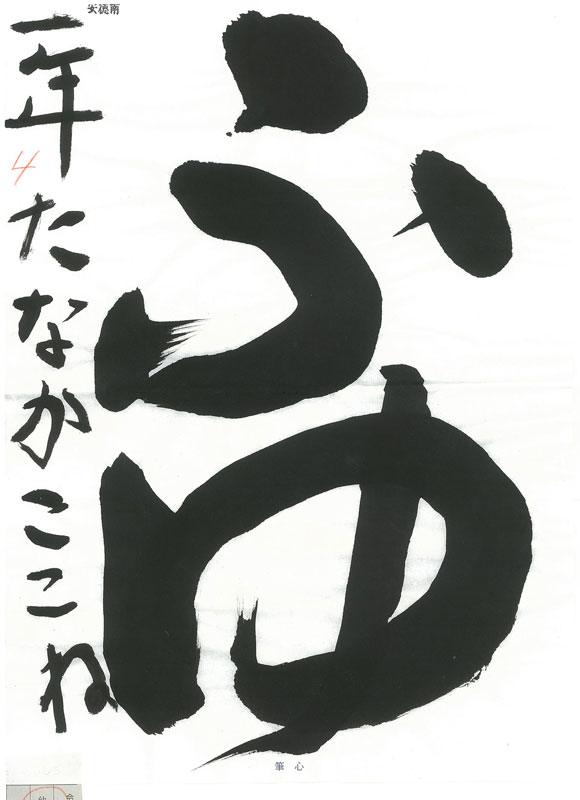 ふゆ
一年たなかここね
4
筆心